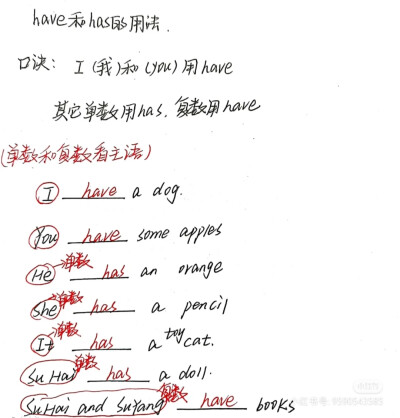 have和has的用法.
口诀: I (我)和 (you) 用have
其它单数用has. 复数用have
(单数和复数看主语)
I have a dog.
You have some apples
He 单数 has an orange
She 单数 has a pencil
It 单数 has a toy cat.
Su Hai 单数 has a doll.
Su Hai and Su Yang 复数 have books
小红书号: 9590643585